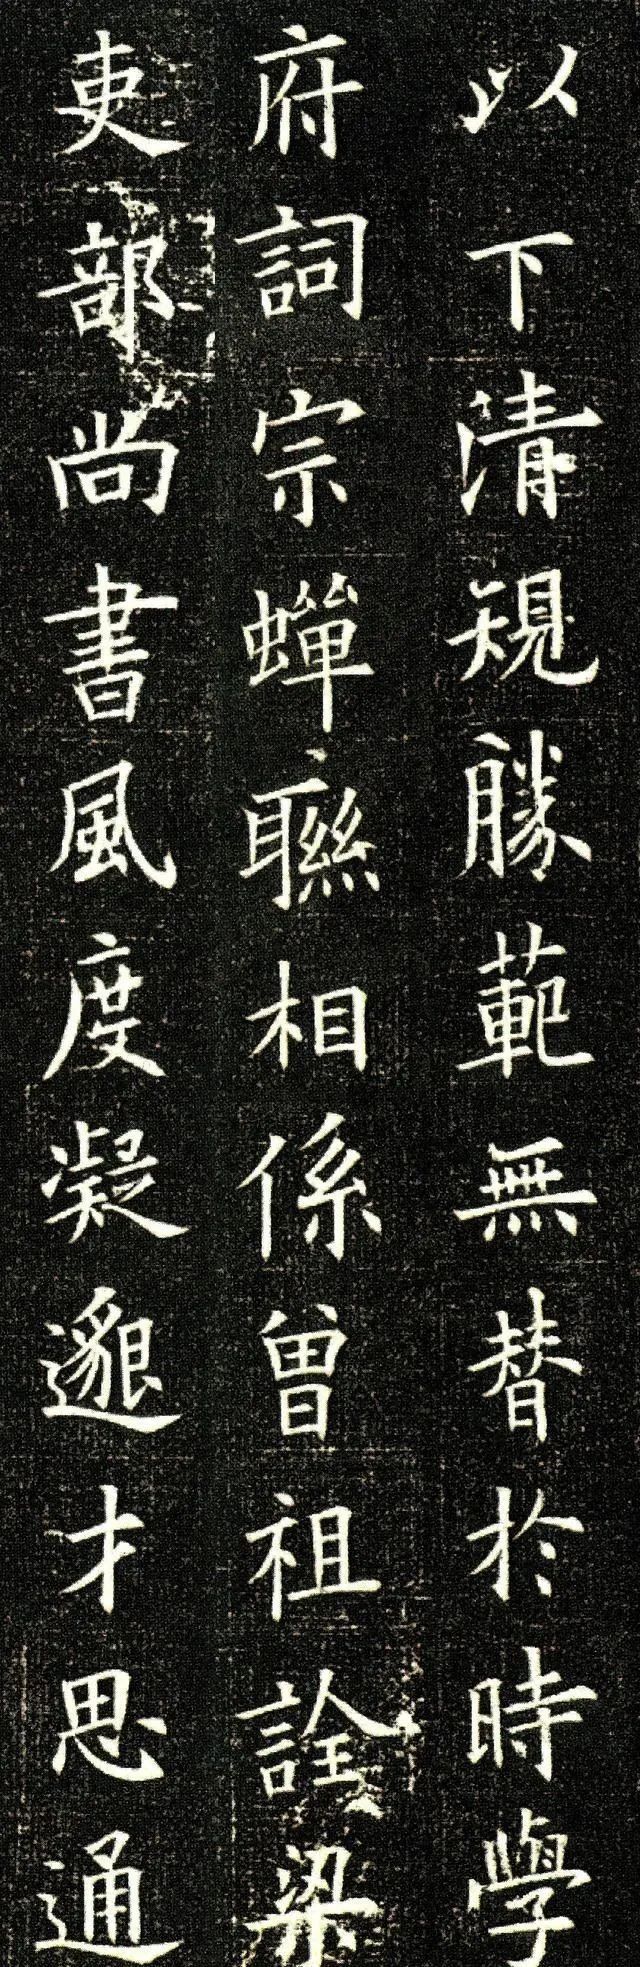 以下清規勝範無替於時學
府詞宗蟬聯相係曾祖詮梁
吏部尚書風度凝邈才思通